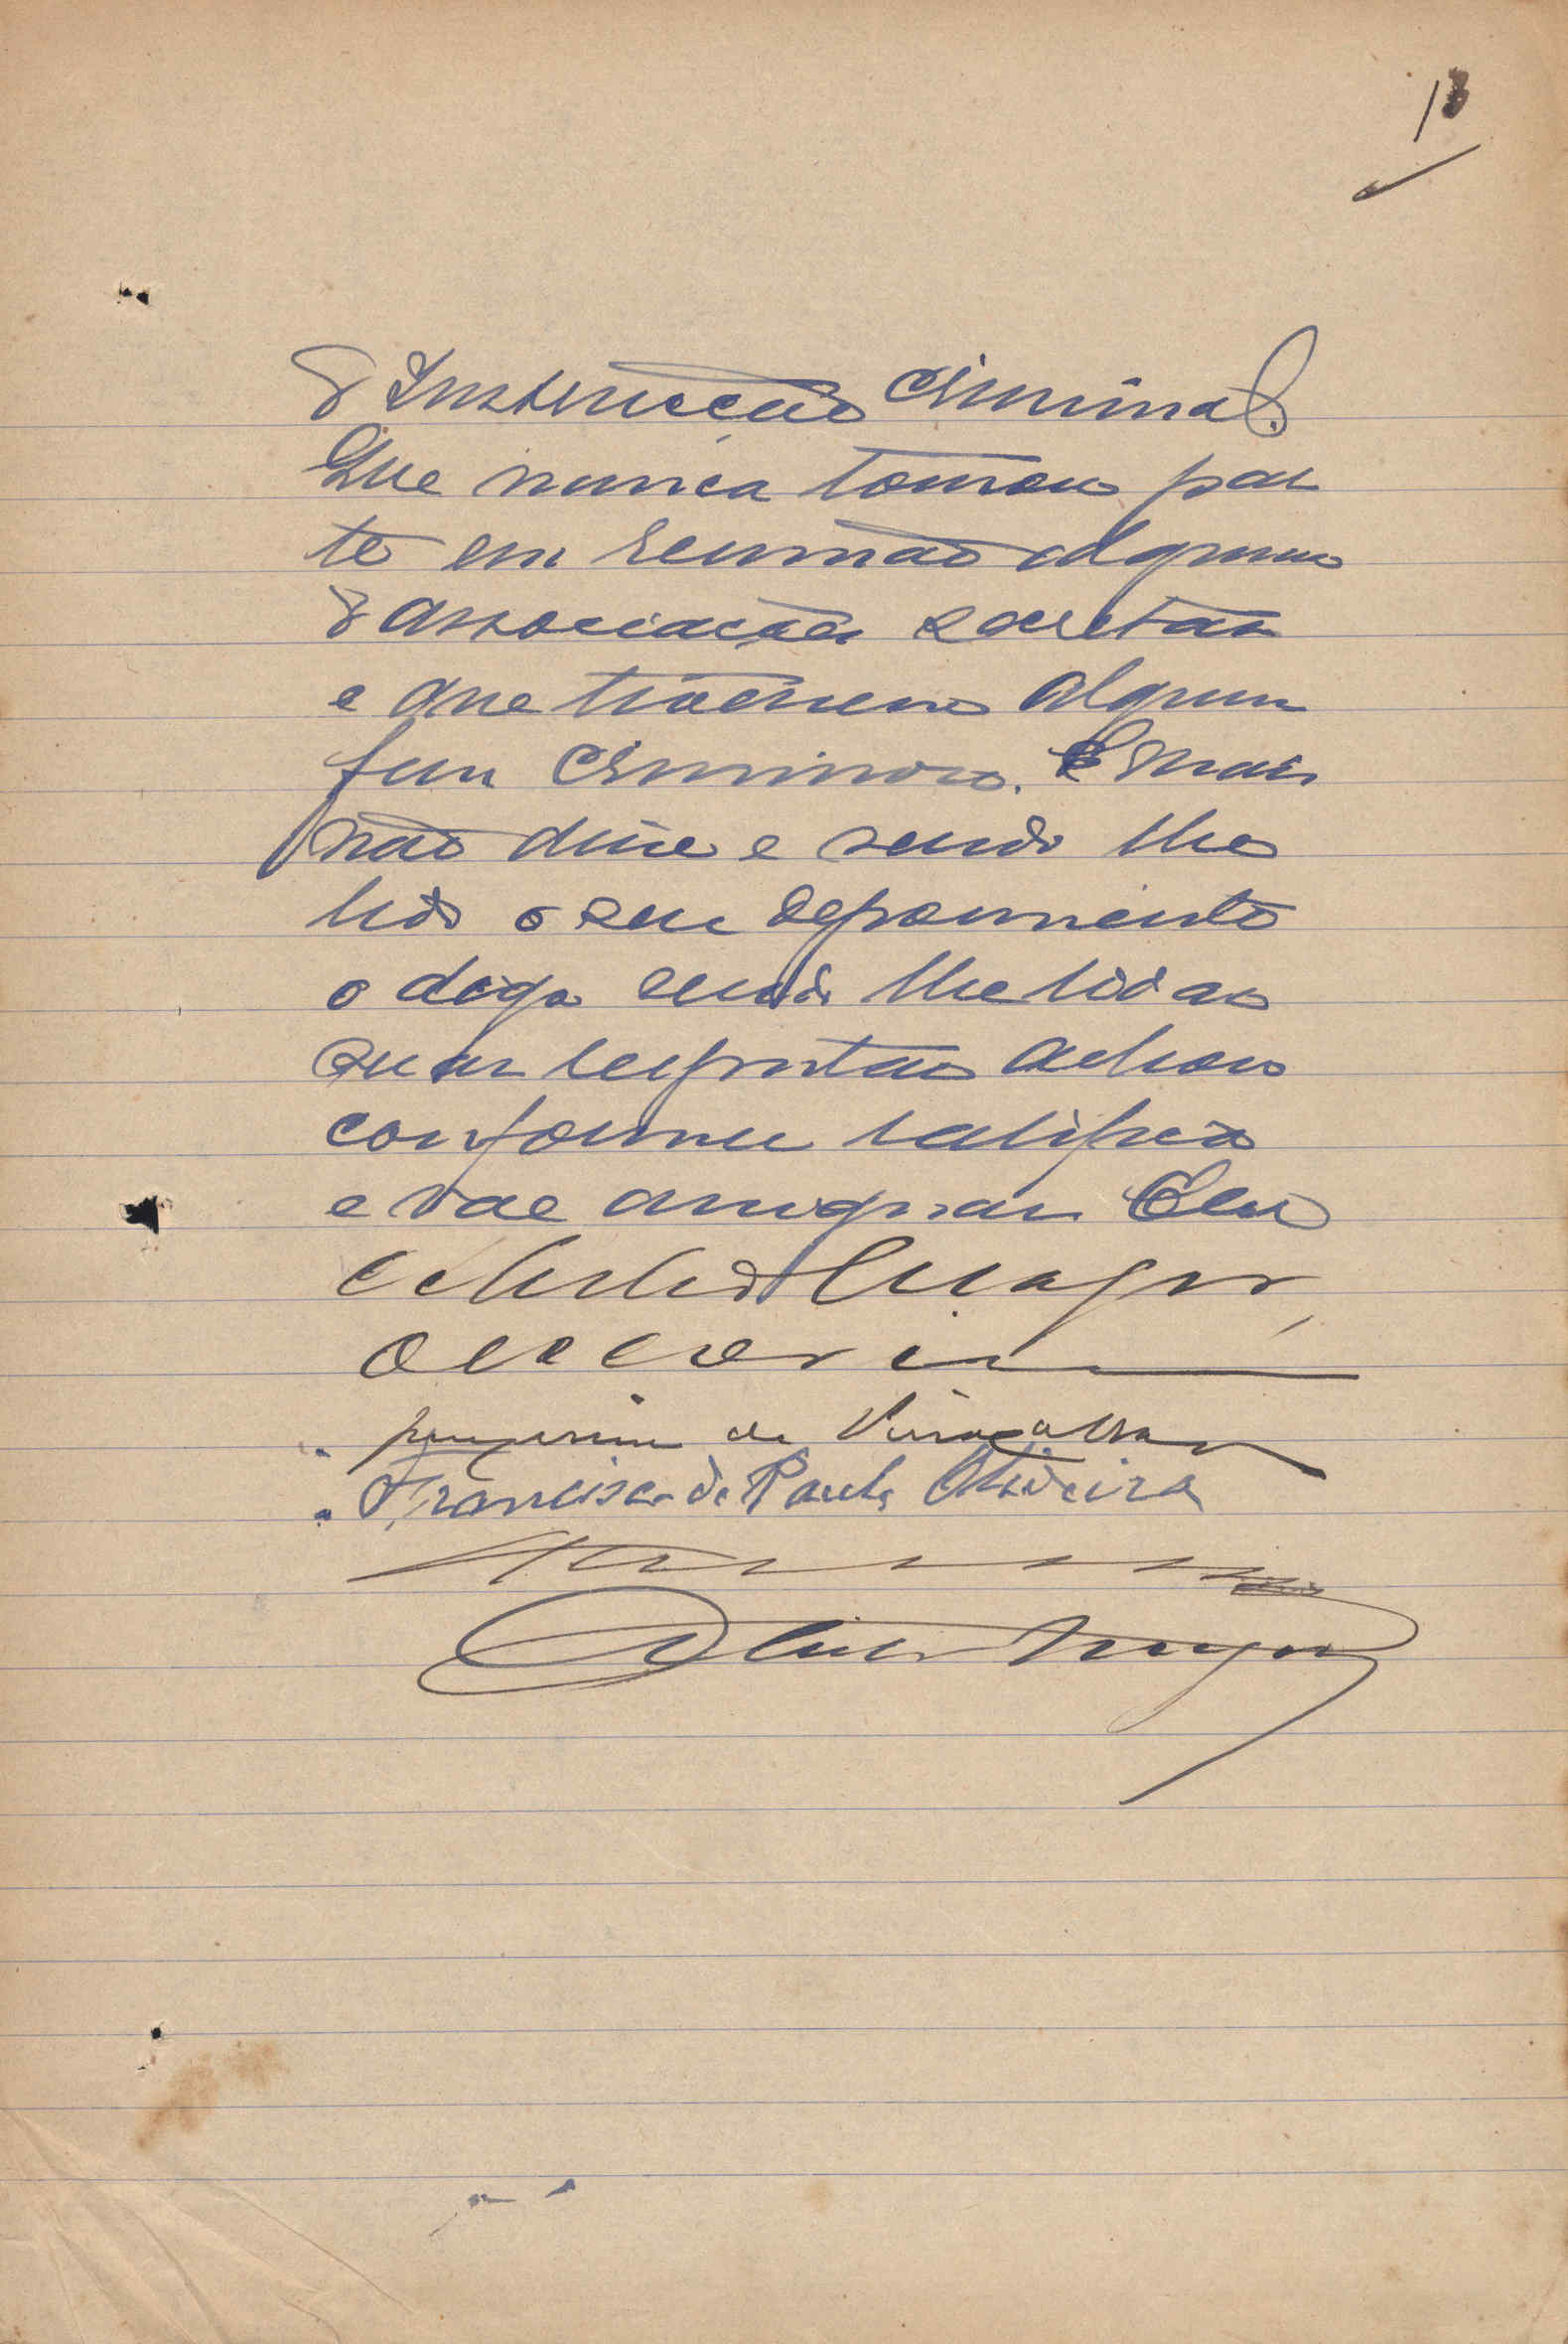 13
d'Instrucção Criminal.
Que nunca tomou par
te em reunião alguma
d'associações secretas
e que tivessem algum
fim criminoso. E mais
não disse e sendo lhe
lido o seu depoimento
o digo sendo lhe lidas
suas respostas achou
conforme ratifica
e vae assignar Eu
escrevi
de
Francisco de Paula Oliveira